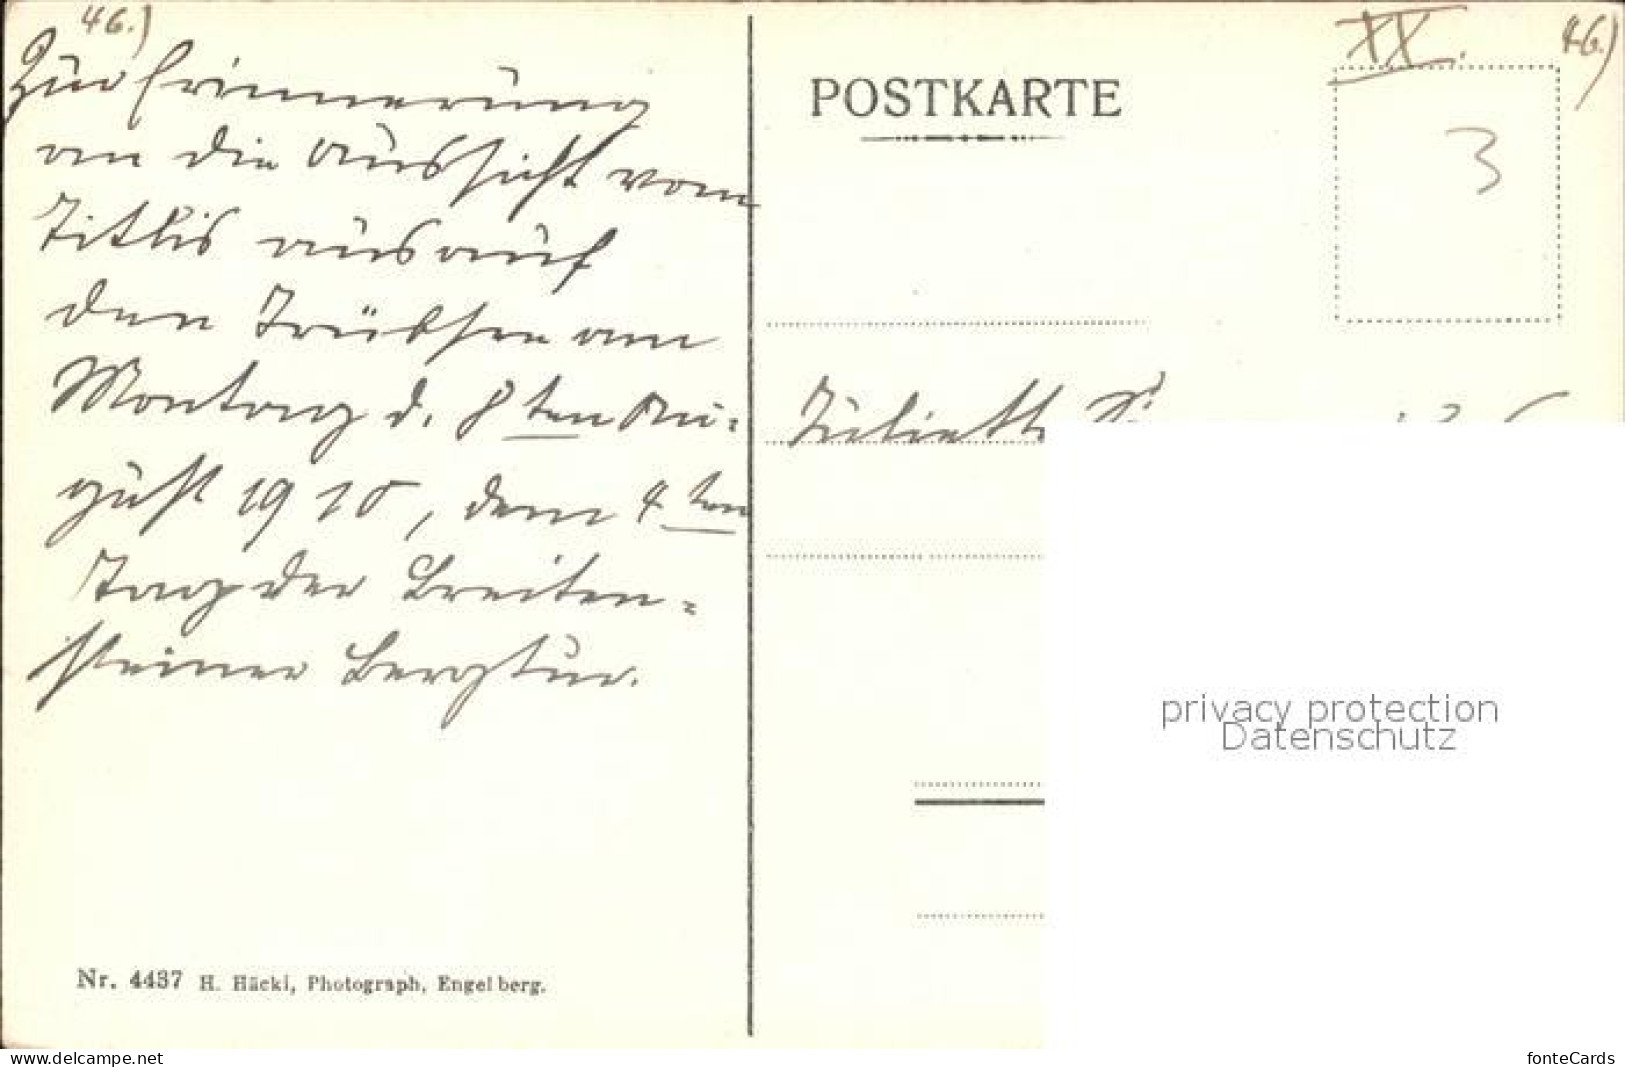 46.)
Zur Erinnerung
an die Aussicht vom
Titlis aus auf
den Trübsee am
Montag d. 8ten Au=
gust 1910, dem 4ten
Tag der Breiten=
steiner Bergtur.
Nr. 4437 H. Häcki, Photograph, Engelberg.
POSTKARTE
XX.
46.)
3
Juliette
privacy protection
Datenschutz
www.delcampe.net
fonteCards